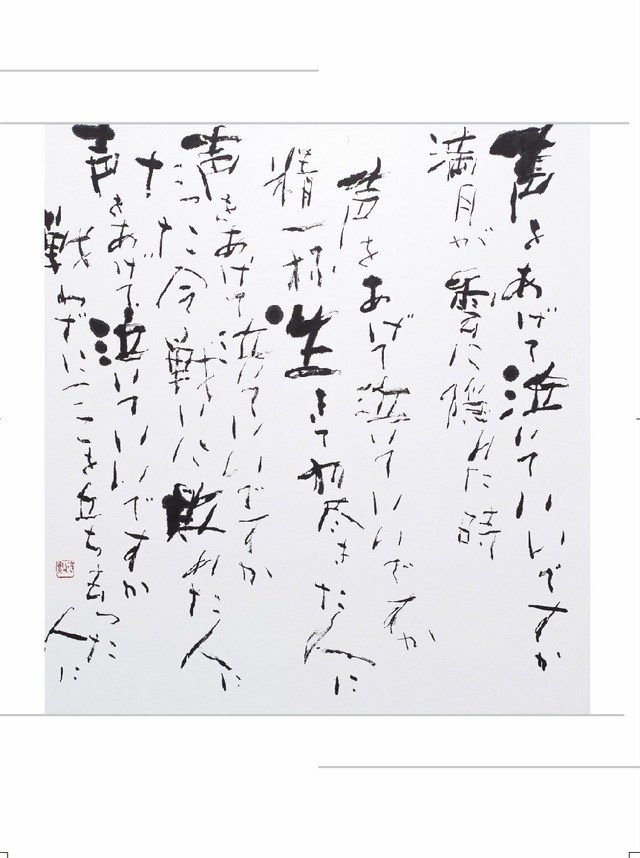 声をあげて泣いていいですか
満月が雲に隠れた時
声をあげて泣いていいですか
精一杯生きて尽きた人に
声をあげて泣いていいですか
たった今戦いに敗れた人に
声をあげて泣いていいですか
戦わずにここを立ち去った人に